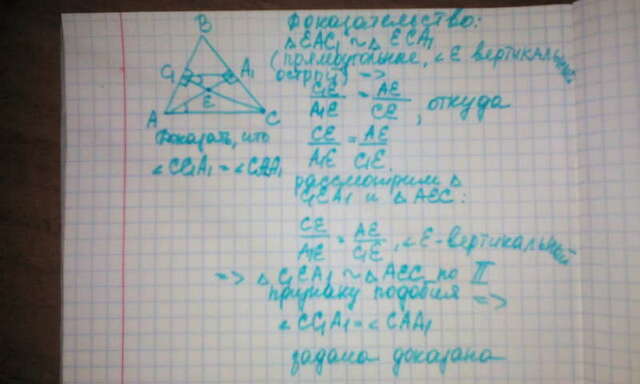 B
C₁ A₁
E
A C
Доказать, что
∠CC₁A₁ = ∠CAA₁
Доказательство:
△EAC₁ ~ △ECA₁
(прямоугольные, ∠E вертикальный
острый) =>
C₁E/A₁E = AE/CE, откуда
CE/A₁E = AE/C₁E.
рассмотрим △
C₁EA₁ и △AEC:
CE/A₁E = AE/C₁E, ∠E - вертикальный
=> △C₁EA₁ ~ △AEC по II
признаку подобия =>
∠CC₁A₁ = ∠CAA₁
задача доказана